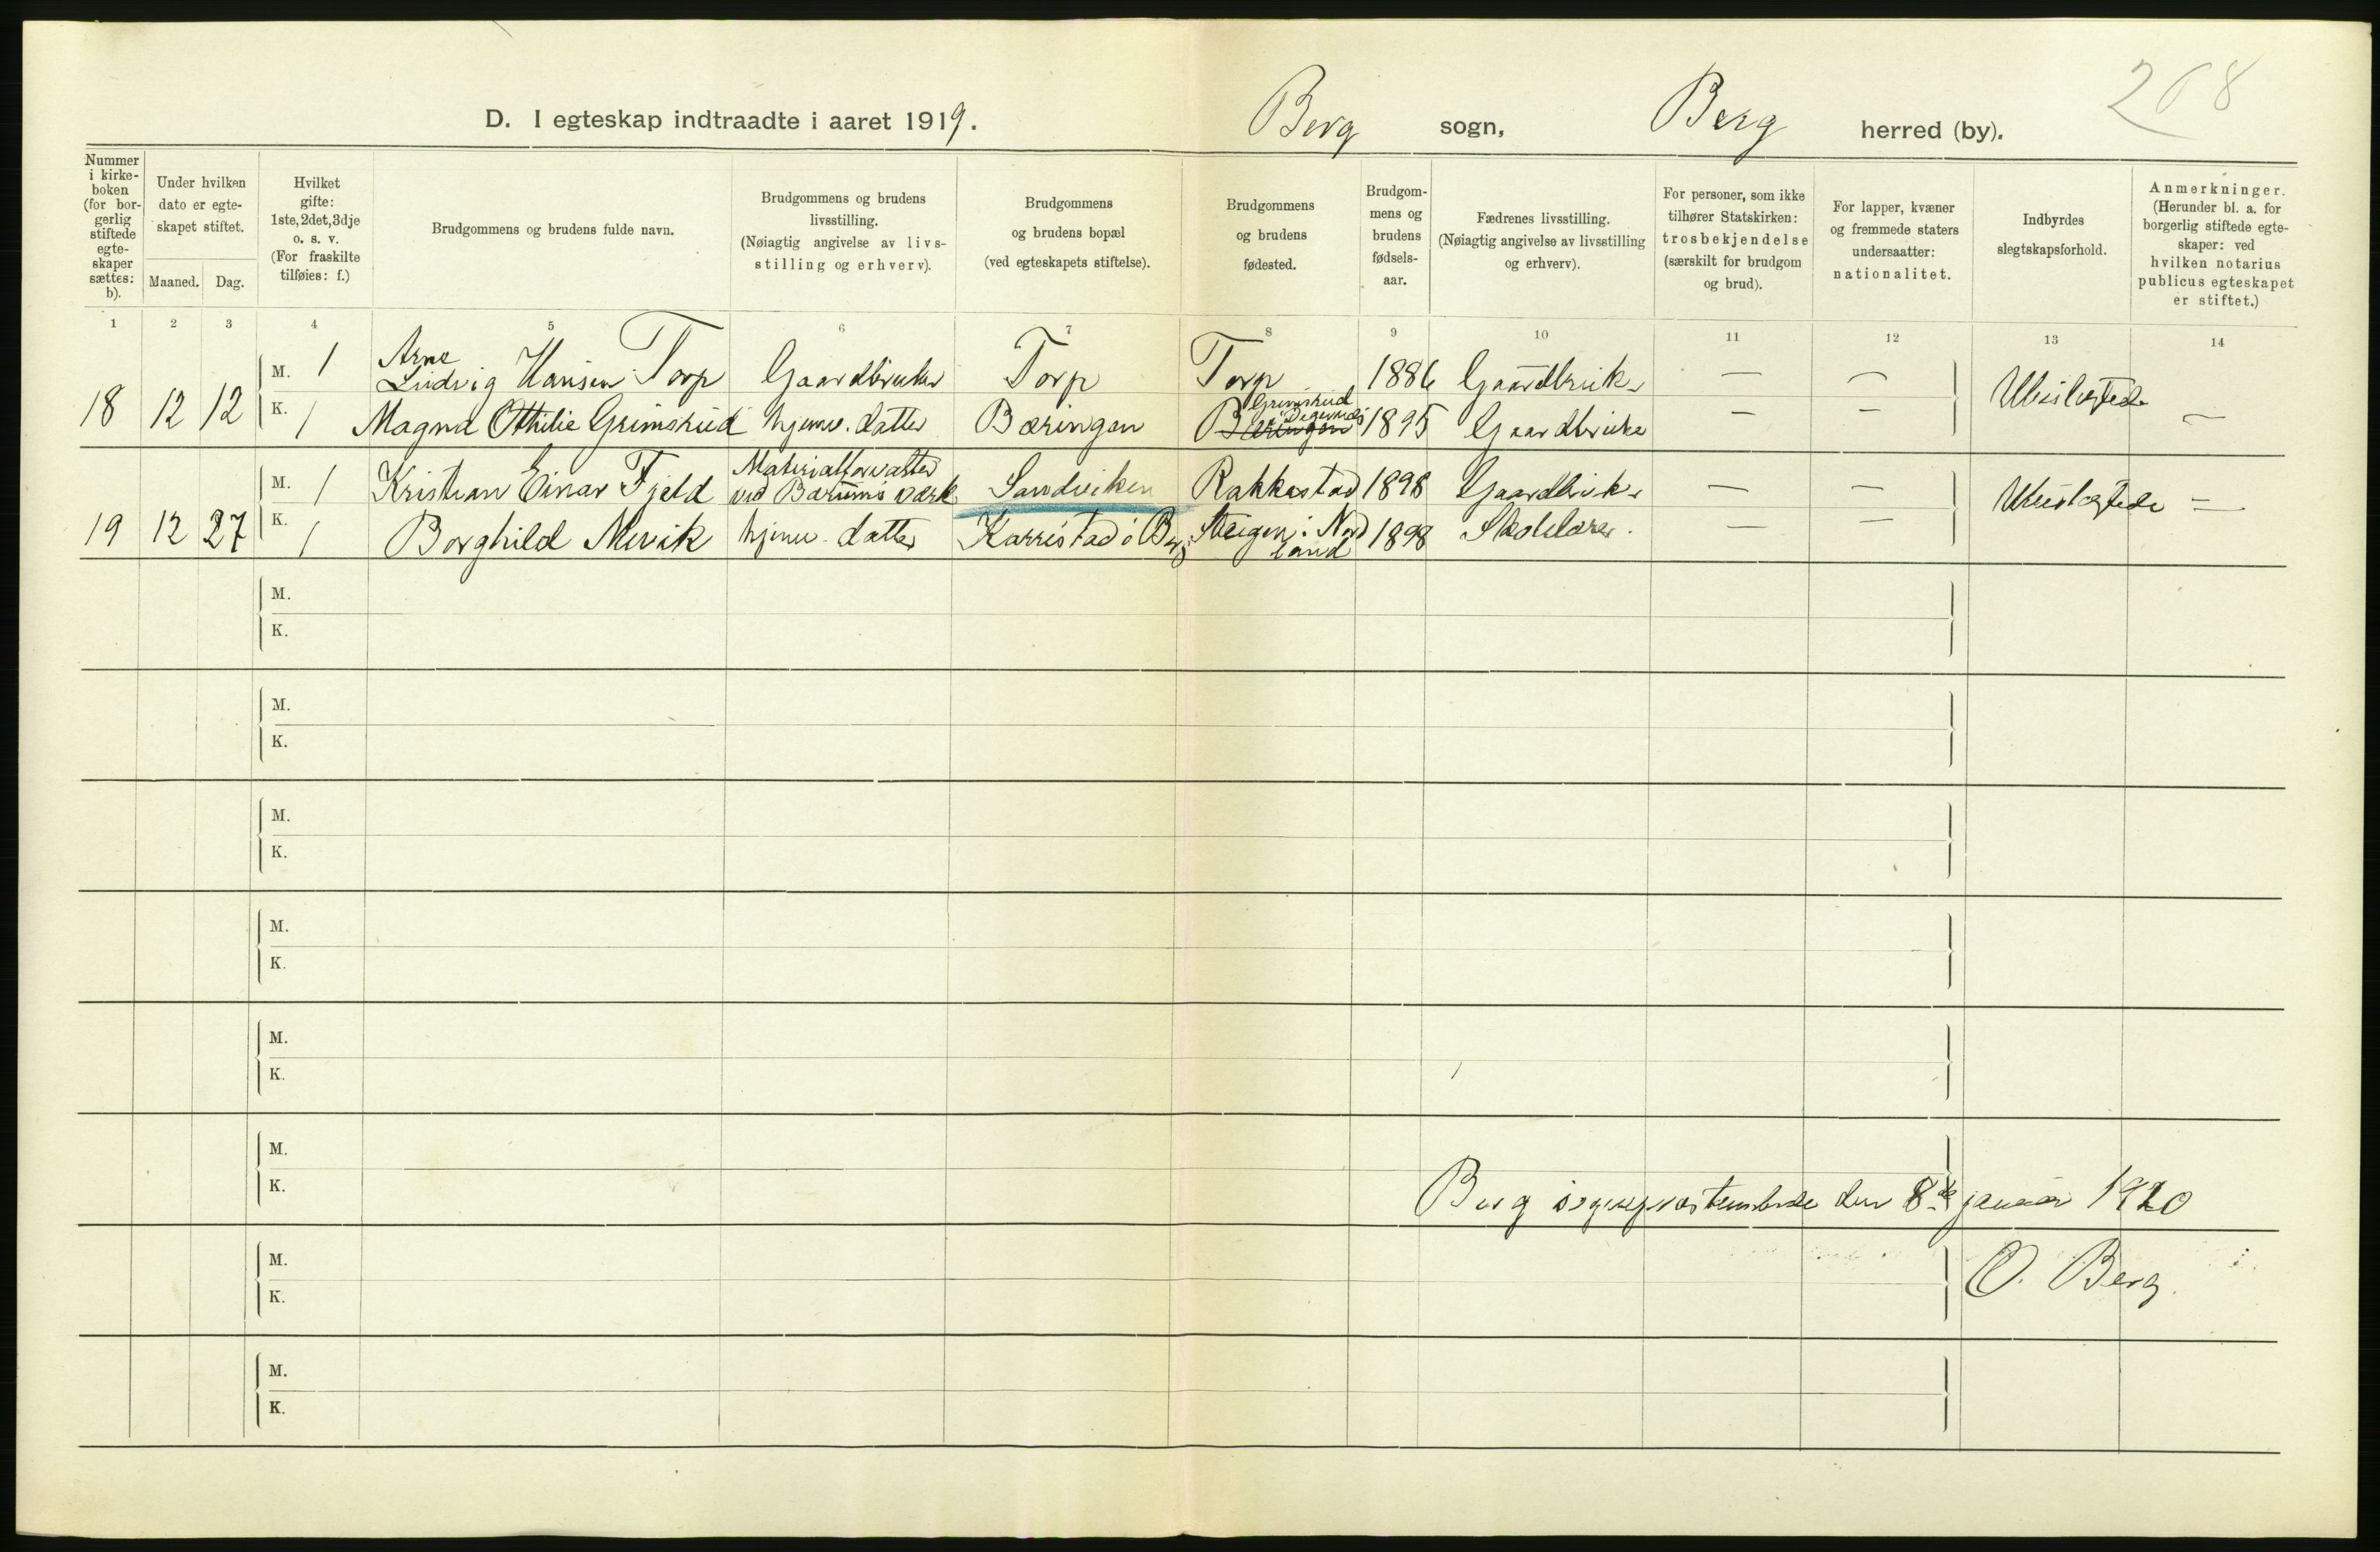 208
D. I egteskap indtraadte i aaret 1919. Berg sogn, Berg herred (by).
Nummer i kirke-boken (for bor-gerlig stiftede egte-skaper sættes: b).
Under hvilken dato er egte-skapet stiftet.
Maaned. Dag.
Hvilket gifte: 1ste, 2det, 3dje o. s. v. (For fraskilte tilføies: f.)
Brudgommens og brudens fulde navn.
Brudgommens og brudens livsstilling. (Nøiagtig angivelse av livs-stilling og erhverv).
Brudgommens og brudens bopæl (ved egteskapets stiftelse).
Brudgommens og brudens fødested.
Brudgom-mens og brudens fødsels-aar.
Fædrenes livsstilling. (Nøiagtig angivelse av livsstilling og erhverv).
For personer, som ikke tilhører Statskirken: trosbekjendelse (særskilt for brudgom og brud).
For lapper, kvæner og fremmede staters undersaatter: nationalitet.
Indbyrdes slegtskapsforhold.
Anmerkninger. (Herunder bl. a. for borgerlig stiftede egte-skaper: ved hvilken notarius publicus egteskapet er stiftet.)
1 2 3 4 5 6 7 8 9 10 11 12 13 14
M. 1 Arne Ludvig Hansen Torp Gaardbruker Torp Torp 1886 Gaardbruker — — Ubeslegtede
18 12 12 K. 1 Magna Othilie Grimsrud hjemv. datter Bæringen Bæringen Grimsrud i Degernes 1895 Gaardbruker — — —
M. 1 Kristian Einar Fjeld Materialforvalter ved Bærums værk Sandviken Rakkestad 1898 Gaardbruker — — Ubeslegtede —
19 12 27 K. 1 Borghild Mevik hjemv. datter Karristad i Berg Steigen i Nordland 1898 Skolelærer. — —
M.
K.
M.
K.
M.
K.
M.
K.
M.
K.
M.
K.
M.
K.
M.
K.
Berg sogneprestembede den 8de januar 1920
O. Berg.